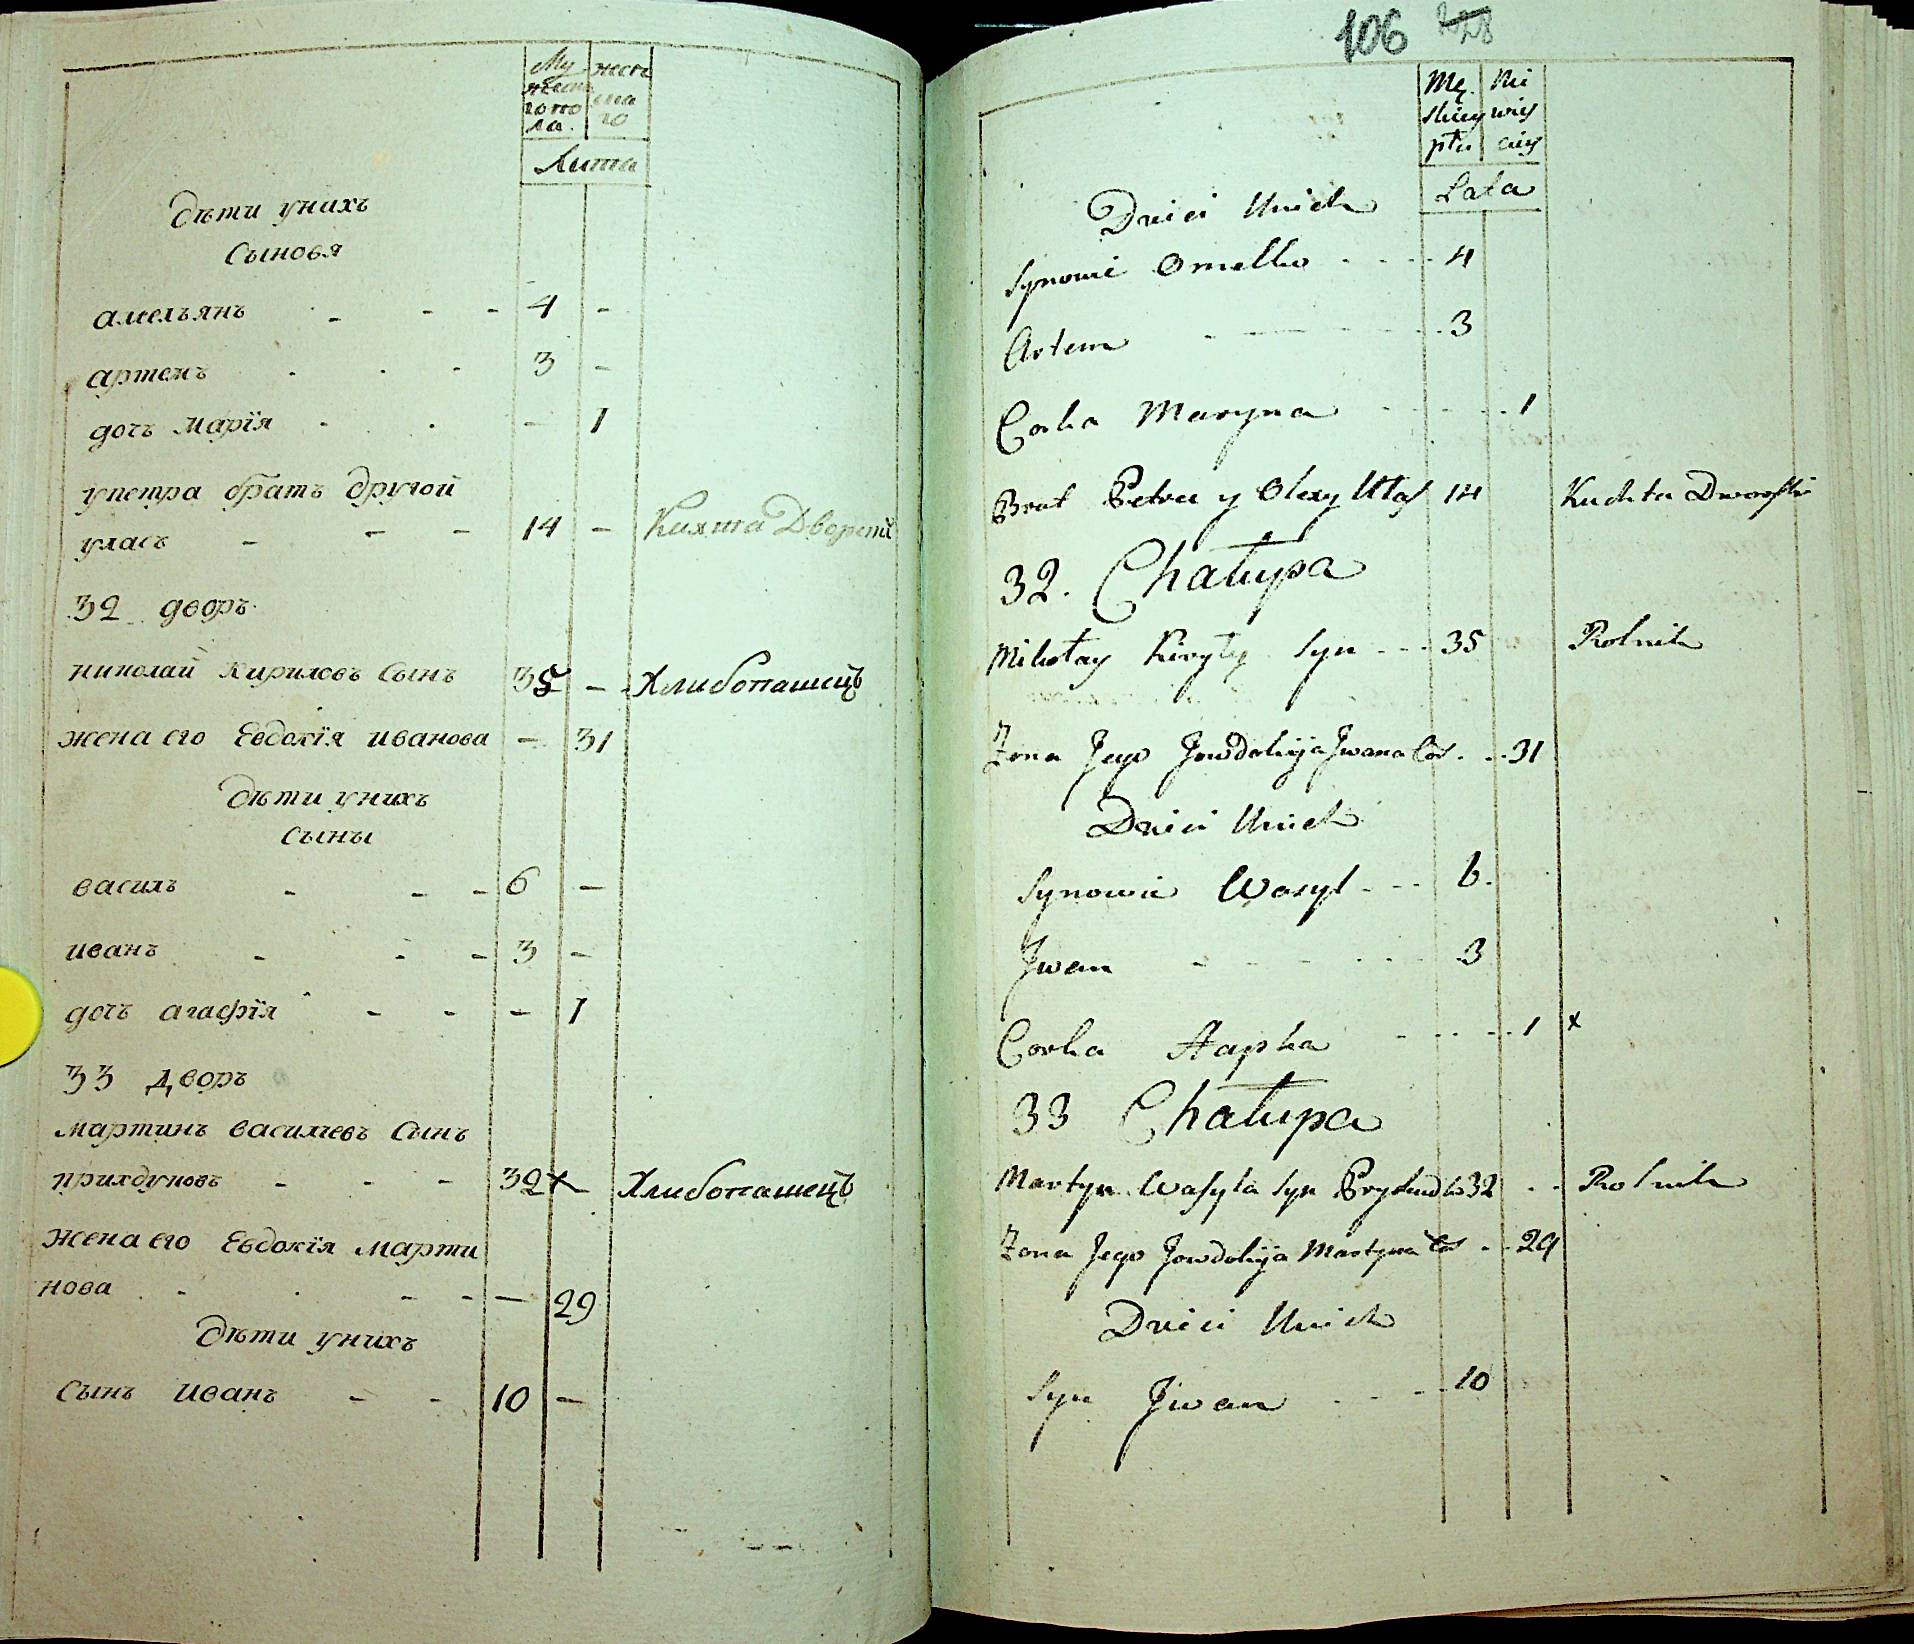 Му жеск
жеска
го по го
ла.
Лита
дѣти унихъ
сыновя
амельянъ - - - 4 -
артемъ . . . 3 -
дочь марїя . . - 1
упетра братъ другой
уласъ - - - 14 - Кихта Дворски
32 дворъ.
николай кириловъ сынъ 35 - Хлибопашецъ
жена его Евдокїя иванова - 31
Дѣти унихъ
сыны
василь - - - 6 -
иванъ - - - 3 -
дочь агафїя - - - 1
33 дворъ
мартинъ василчевъ сынъ
прихдуновъ - - - 32 x - Хлибопашецъ
жена его Евдокїя марти
нова . - . - - - 29
Дѣти унихъ
Сынъ Иванъ - - 10 -
106 228
Mę. Ni
skiey wiey
płu ciey
Lata
Dzieci Unich
Synowie Omelko . - - - 4
Artem - - - - 3
Corka Maryna - - - 1
Brat Petra y Olexy Ułas 14 Kuchta Dworski
32. Chałupa
Mikołay Kiryły Syn - - - 35 Rolnik
Żona Jego Jewdokija Jwana Cor. - - 31
Dzieci Unich
Synowie Wasyl - - - 6.
Jwan - - - - - 3
Corka Hapka - - - - 1 x
33 Chałupa
Martyn Wasyla Syn Prykudko 32 - - Rolnik
Żona Jego Jewdokija Martyna Cor - - 29
Dzieci Unich
Syn Jwan - - - 10